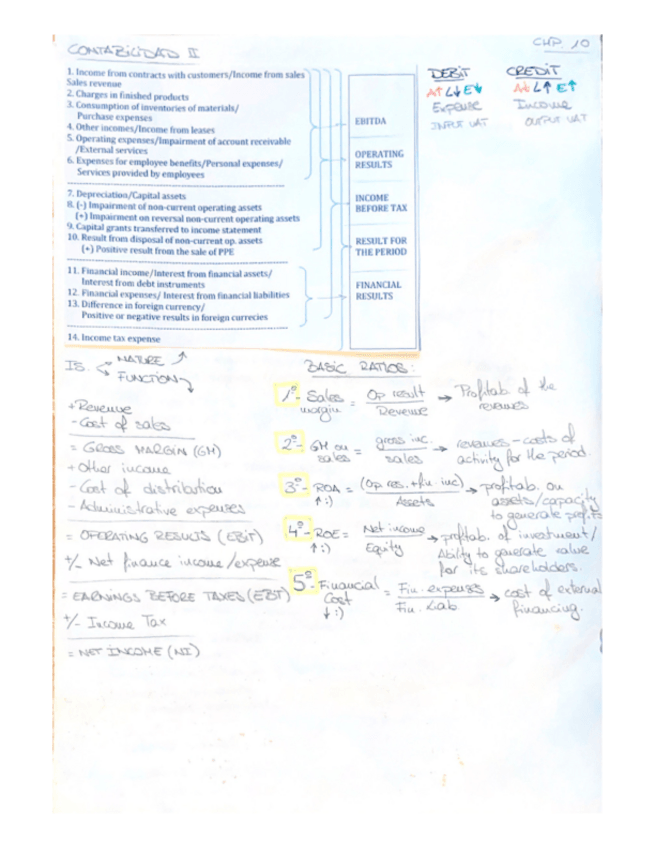 CONTABILIDAD II
CHP. 10
1. Income from contracts with customers/Income from sales
Sales revenue
2. Charges in finished products
3. Consumption of inventories of materials/
Purchase expenses
4. Other incomes/Income from leases
5. Operating expenses/Impairment of account receivable
/External services
6. Expenses for employee benefits/Personal expenses/
Services provided by employees
7. Depreciation/Capital assets
8. (-) Impairment of non-current operating assets
(+) Impairment on reversal non-current operating assets
9. Capital grants transferred to income statement
10. Result from disposal of non-current op. assets
(+) Positive result from the sale of PPE
11. Financial income/Interest from financial assets/
Interest from debt instruments
12. Financial expenses/ Interest from financial liabilities
13. Difference in foreign currency/
Positive or negative results in foreign currecies
14. Income tax expense
EBITDA
OPERATING
RESULTS
INCOME
BEFORE TAX
RESULT FOR
THE PERIOD
FINANCIAL
RESULTS
DEBIT
A↑ L↓ E↓
Expense
INPUT VAT
CREDIT
A↓ L↑ E↑
Income
OUTPUT VAT
IS. NATURE
FUNCTION
+Revenue
- Cost of sales
= GROSS MARGIN (GM)
+ Other income
- Cost of distribution
- Administrative expenses
= OPERATING RESULTS (EBIT)
+/- Net finance income/expense
= EARNINGS BEFORE TAXES (EBT)
+/- Income Tax
= NET INCOME (NI)
BASIC RATIOS:
1º- Sales margin = Op result / Revenue → Profitab of the revenues
2º- GM on sales = gross inc. / sales → revenues - costs of activity for the period.
3º- ROA = (Op res. + fin. inc) / Assets → profitab. on assets/capacity to generate profits
↑ :)
4º- ROE = Net income / Equity → profitab. of investment/ Ability to generate value for its shareholders.
↑ :)
5º- Financial Cost = Fin. expenses / Fin. Liab. → cost of external financing.
↓ :)